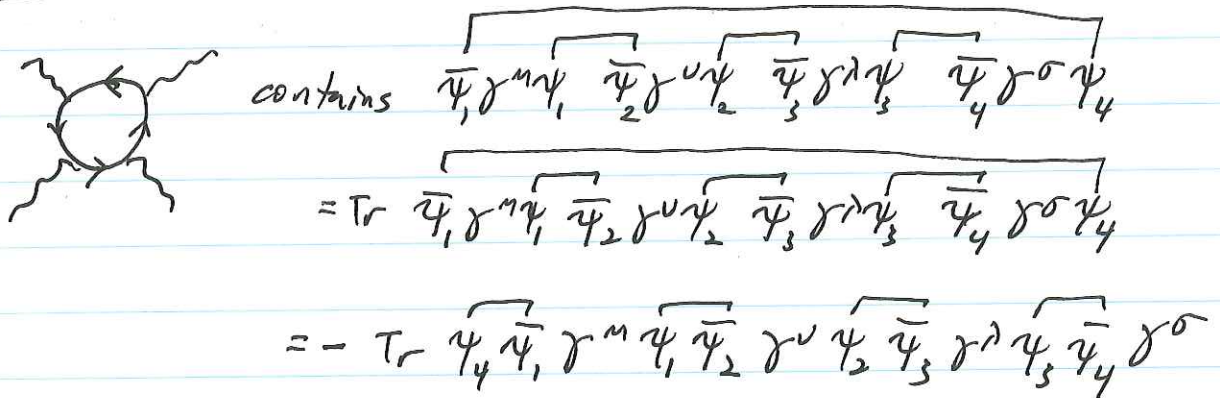 contains ψ̄₁γ^μψ₁ ψ̄₂γ^νψ₂ ψ̄₃γ^λψ₃ ψ̄₄γ^σψ₄
= Tr ψ̄₁γ^μψ₁ ψ̄₂γ^νψ₂ ψ̄₃γ^λψ₃ ψ̄₄γ^σψ₄
= - Tr ψ₄ψ̄₁γ^μψ₁ψ̄₂γ^νψ₂ψ̄₃γ^λψ₃ψ̄₄γ^σ